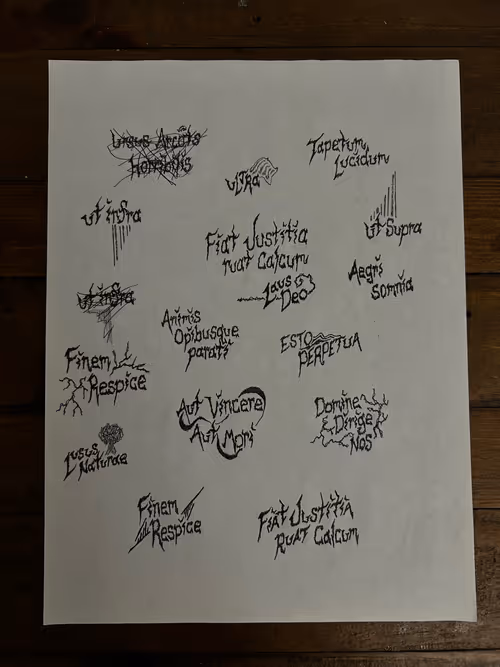 Ursus Arctos
Horribilis
ultra
Tapetum
Lucidum
ut infra
Fiat Justitia
ruat Calcum
ut Supra
Laus
Deo
Aegri
Somnia
ut infra
Animis
Opibusque
parati
ESTO
PERPETUA
Finem
Respice
Aut Vincere
Aut Mori
Domine
Dirige
Nos
Lusus
Naturae
Finem
Respice
Fiat Justitia
Ruat Calcum